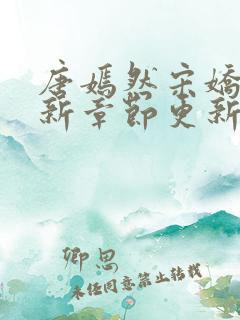 唐嫣然宋嬌
新章節更新
卿思
未经同意禁止转载